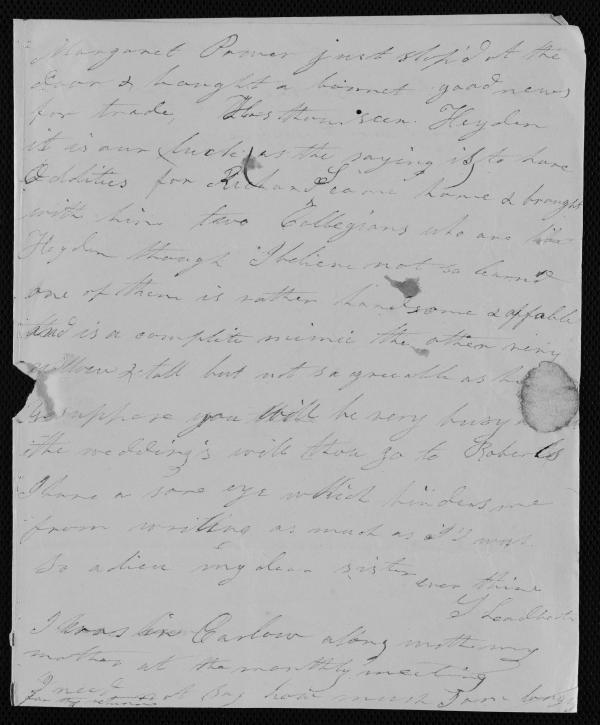 Margaret Power just stop'd at the
door & bought a bonnet good news
for trade, Has thou seen Heyden
it is our luck (as the saying is) to have
Oddities for Richard S came home & brought
with him two Collegians who are like
Heyden though I believe not so learnd
one of them is rather handsome & affable
and is a complete mimic the other very
& tall but not so agreeable as he
I suppose you will be very busy
the wedding's will thou go to Roberts
I have a sore eye which hinders me
from writing as much as I'd
So adieu my dear sister
ever thine
S Leadbeater
I was in Carlow along with my
mother at the monthly meeting
I need not say how much I am long
for thy return